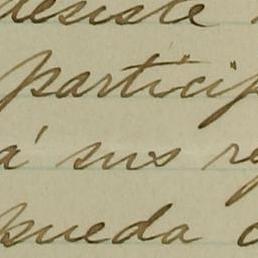 desiste
particip
á sus re
pueda